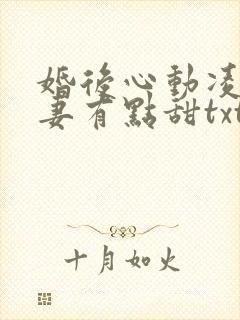 婚後心動凌
妻有點甜txt
十月如火